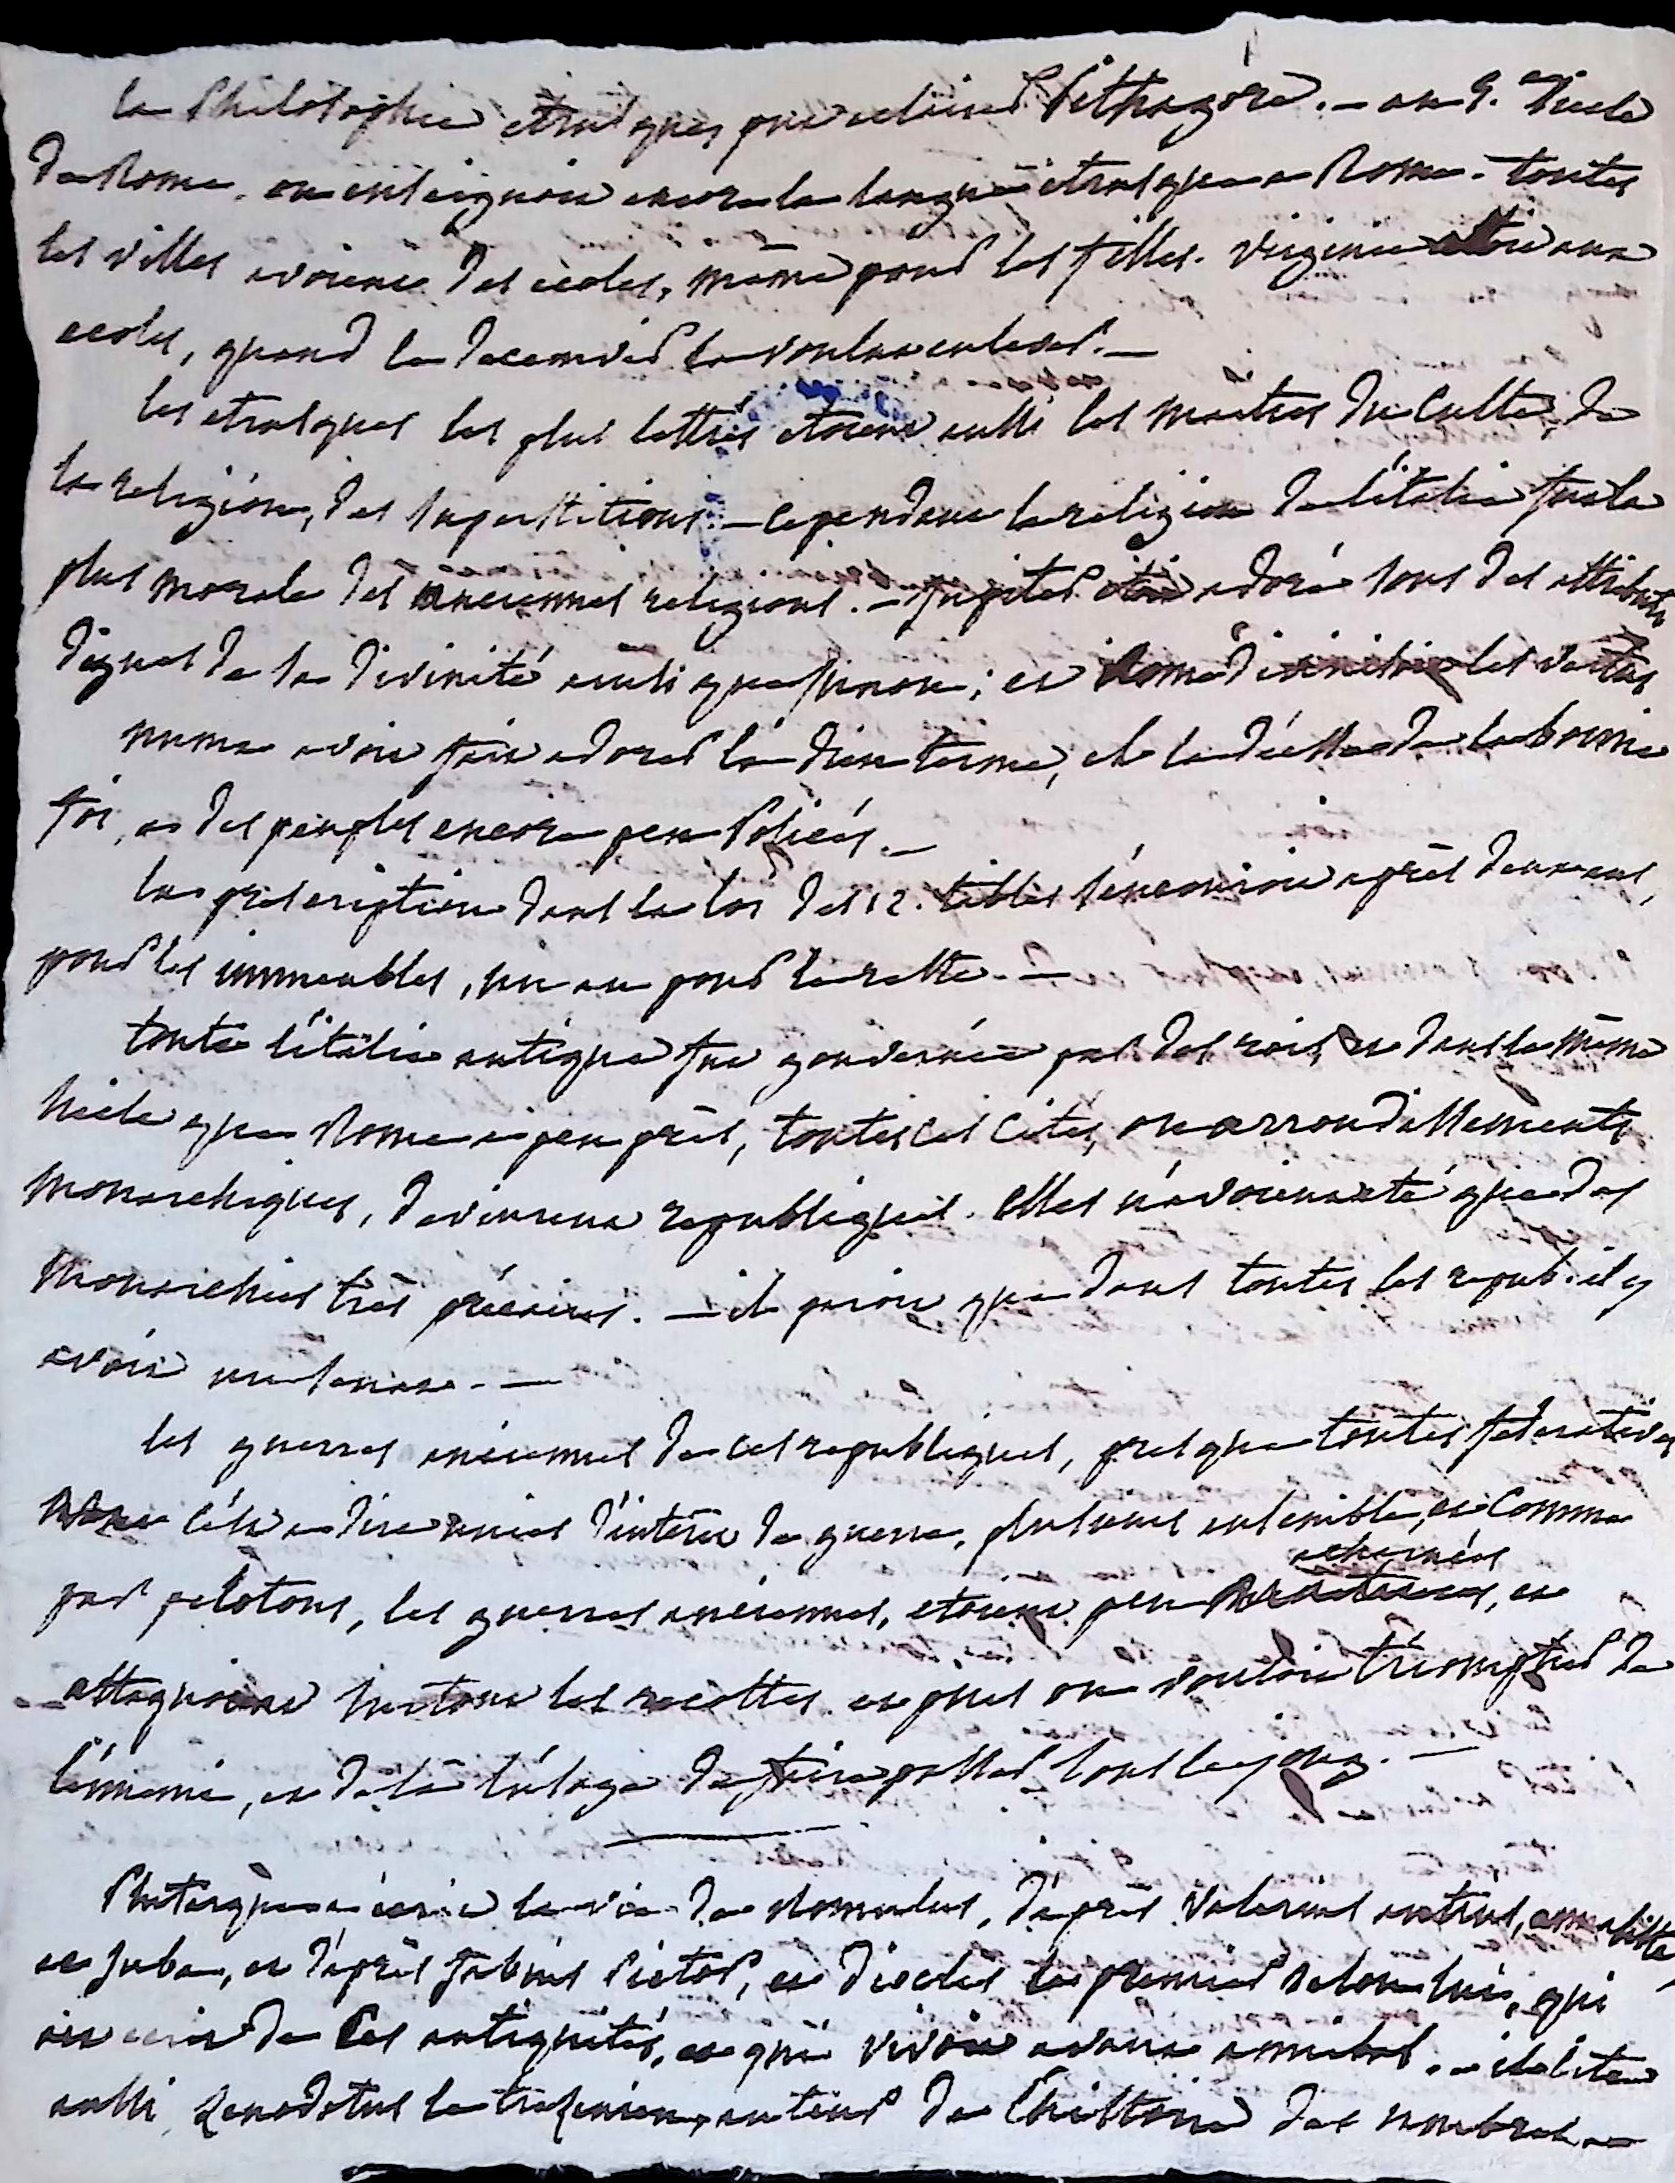 la Philosophie etrusque, para eclairer Pithagore. — au 5. Siecle
de Rome. on enseignoit encore la langue etrusque a Rome. toutes
les villes avoient des ecoles, même pour les filles. Virginie etoit aux
ecoles, quand le decemvir la voulut enlever. —
les etrusques les plus lettrés etoient aussi les maitres du culte, de
la religion, des superstitions. — cependant la religion de l'italie fut la
plus morale des anciennes religions. — Jupiter etoit adoré sous des attributs
dignes de la divinité ainsi que Junon ; et Rome divinisoit les vertus
numa avoit fait adorer le dieu terme, et la déesse de la bonne
foi, a des peuples encore peu policés. —
la prescription dans la loi des 12. tables s'encouroit après deux ans,
pour les immeubles, un an pour le reste. —
toute l'italie antique fut gouvernée par des rois, et dans le même
siecle que Rome a peu près, toutes ces cités, ou arrondissements
monarchiques, devinrent republiques. elles n'avoient eté que des
monarchies très précaires. — il paroit que dans toutes les repub. il y
avoit un senat. —
les guerres anciennes de ces republiques, presque toutes federatives
c'est a dire unies d'interêt de guerre, plusieurs ensemble, et comme
par pelotons, les guerres anciennes, etoient peu acharnées, et
attaquoient surtout les recoltes. et puis on vouloit triompher de
l'ennemi, et de là l'usage de faire passer sous le joug. —
Plutarque a écrit la vie de Romulus, d'après Valerius antius, annaliste,
et Juba, et d'après fabius Pictor, et diocles le premier selon lui, qui
ait ecrit de ces antiquités, et qui vivoit avant annibal. — il cite
aussi Zenodotus le trezenien, auteur de l'histoire des ombres. —